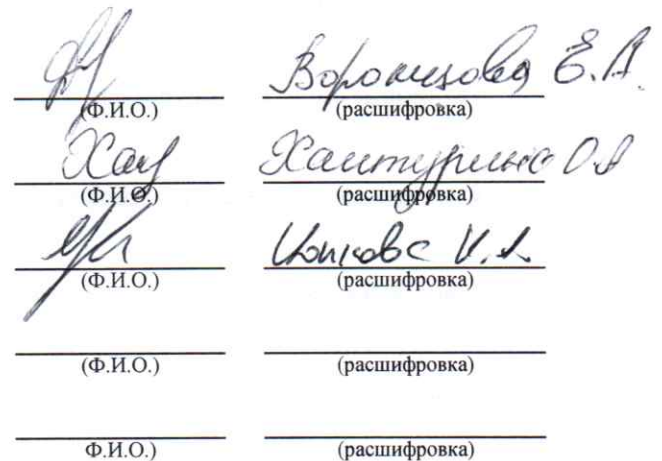 Воронцова Е.А.
(Ф.И.О.) (расшифровка)
Хантурина О.А
(Ф.И.О.) (расшифровка)
(Ф.И.О.) (расшифровка)
(Ф.И.О.) (расшифровка)
Ф.И.О.) (расшифровка)